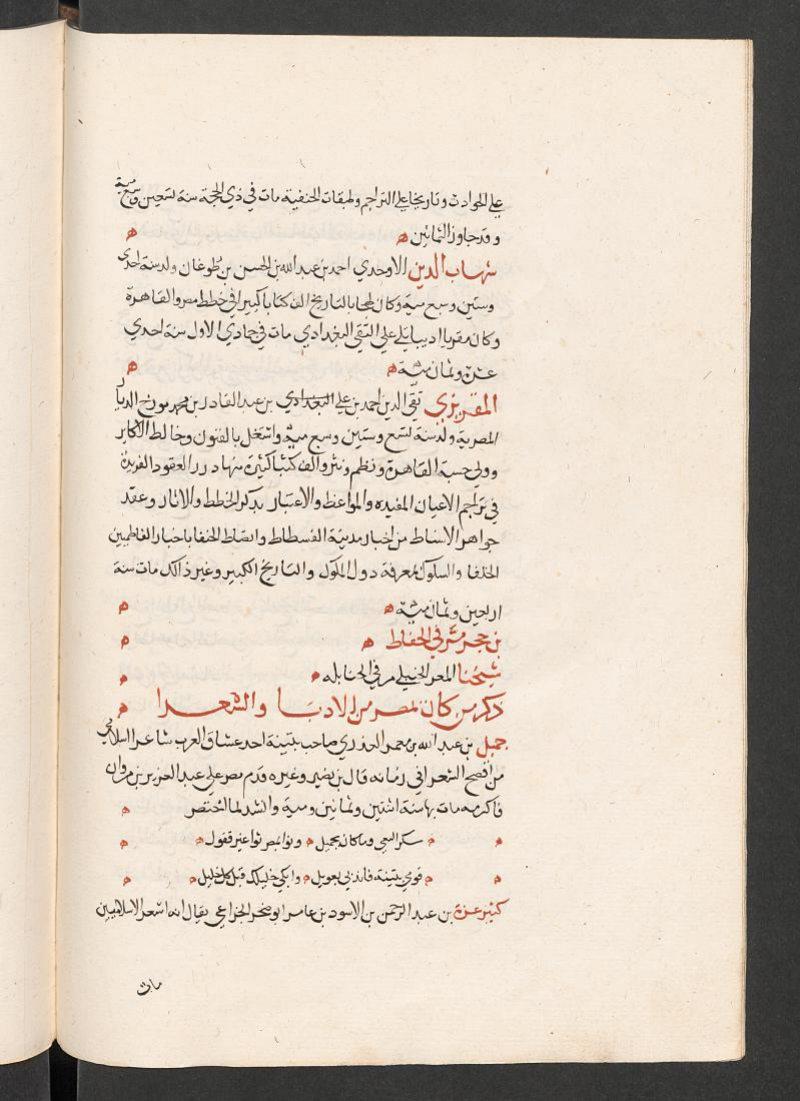 على الحوادث وتاريخا على التراجم وطبقات الحنفية مات في ذي الحجة سنة تسعين وسبع مية
وقد جاوز الثمانين ه ه
شهاب الدين الاوحدي احمد بن عبد الله بن الحسن بن طوغان ولد سنة احدى
وستين وسبع مية وكان لهجا بالتاريخ الف كتابا كبيرا في خطط مصر والقاهرة
وكان مقريا اديبا تلا على التقي البغدادي مات في جمادي الاول سنة احدي
عشرة وثمان مئة ه ه
المقريزي تقي الدين احمد بن علي البغدادي بن عبد القادر بن محمد مورخ الديار
المصرية ولد سنة تسع وستين وسبع مية واشتغل بالفنون وخالط الاكابر
وولي حسبة القاهرة ونظم ونثر والف كتبا كثيرة منها درر العقود الفريدة
في تراجم الاعيان المفيده والمواعظ والاعتبار بذكر الخطط والاثار وعقد
جواهر الاسفاط من اخبار مدينة الفسطاط واتعاظ الحنفا باخبار الفاطميين
الخلفا والسلوك لمعرفة دول الملوك والتاريخ الكبير وغير ذالك مات سنة
اربعين وثمان مئة ه ه
بن حجر مر في الحفاظ ه ه
شيخنا العز الحنبلي مر في الحنابله
ذكر من كان بمصر من الادبا والشعرا ه
جميل بن عبد الله بن معمر العذري صاحب بثينة احد عشاق العرب شاعر اسلامي
من افصح الشعرا في زمانه قال بن وغيره قدم مصر على عبد العزيز بن مروان
فاكرمه مات بها سنة اثنتين وثمانين ومية وانشد لما احتضر
وما كان بجميل وثوا بمصر ثوا غير قفول
قومي بثينة فاندبي بعويل وابكي خليلك قبل كل خليل
كثير عزة بن عبد الرحمن بن الاسود بن عامر ابو صخر الخزاعي يقال انه اشعر الاسلاميين
مات